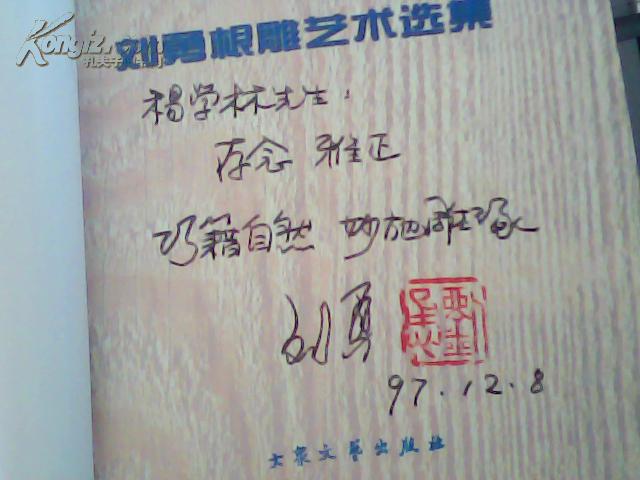 Kongfz.com
孔夫子
刘勇根雕艺术选集
杨学林先生：
存念 雅正
巧籍自然 妙施雕琢
刘勇
97.12.8
大众文艺出版社